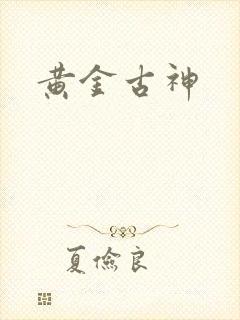 黄金古神
夏儉良